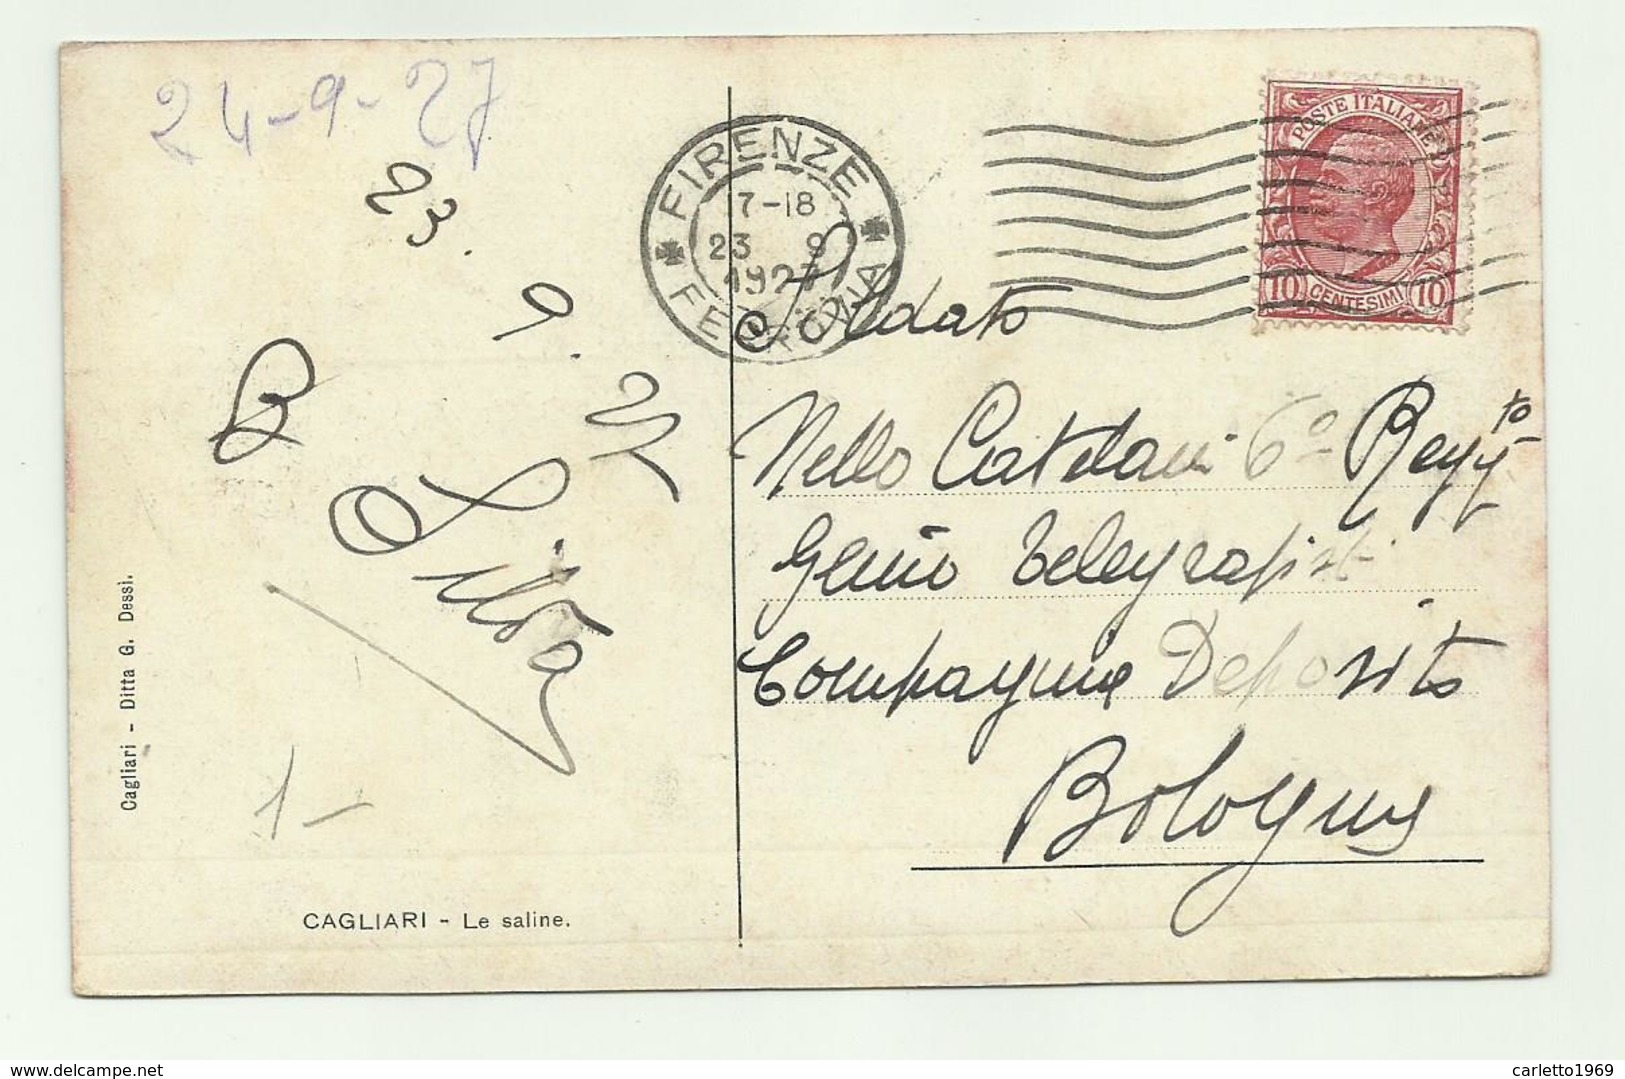 24-9-27
23.
9.
27
B
Silva
1-
Cagliari - Ditta G. Dessì.
CAGLIARI - Le saline.
FIRENZE
17-18
23 9
1927
FERROVIA
POSTE ITALIANE
10 CENTESIMI 10
Soldato
Nello Catelani 6º Reggto
Genio Telegrafisti
Compagnia Deposito
Bologna
carletto1969
www.delcampe.net